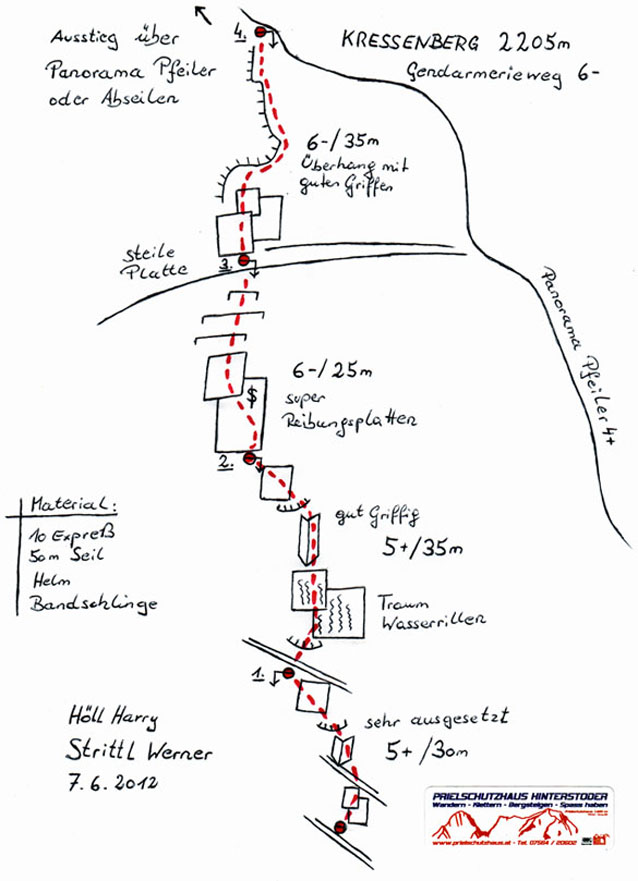 Ausstieg über
Panorama Pfeiler
oder Abseilen
4.
KRESSENBERG 2205m
Gendarmerieweg 6-
6-/35m
Überhang mit
guten Griffen
steile
Platte
3.
Panorama Pfeiler 4+
6-/25m
super
Reibungsplatten
$
2.
Material:
10 Expreß
50m Seil
Helm
Bandschlinge
gut Griffig
5+/35m
Traum
Wasserrillen
1.
sehr ausgesetzt
5+/30m
Höll Harry
Strittl Werner
7.6.2012
PRIELSCHUTZHAUS HINTERSTODER
Wandern - Klettern - Bergsteigen - Spass haben
www.prielschutzhaus.at - Tel. 07564 / 20602